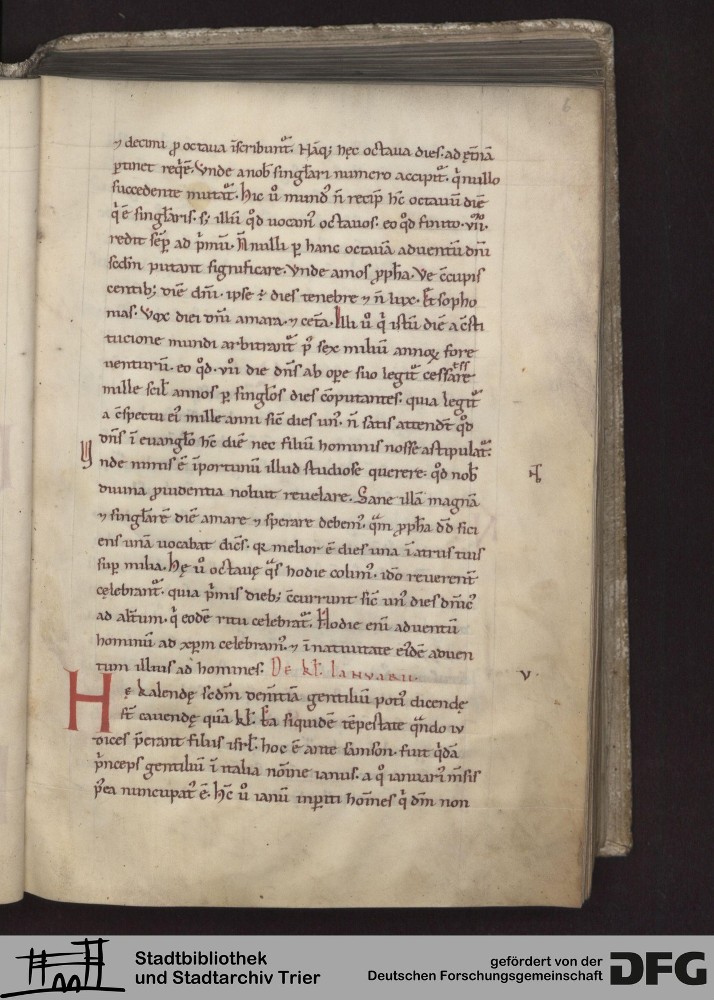 ⁊ decimi ꝓ octaua īscribunt᷒. Nāq; hęc octaua dies. ad ętnā
ꝑtinet reqē. Vnde a nob singłari numero accipit᷒. q̇ nullo
succedente mutat᷒. Hic u̇ mund᷒ n̄ recip̄ hc̄ octauū diē
q̇ ē singłaris. s; illū qd̄ uocam᷒ octauos. eo qd̄ finito. vii.
redit sēp ad ṗmū. Nōnulli ꝑ hanc octauā aduentū dn̄i
scdm̄ putant significare. Vnde amos ꝓph̄a. Ve c̄cupis
centib; diē dn̄i. ipse ē dies tenebre ⁊ n̄ lux. Et sopho
nias. Vox diei dn̄i amara. ⁊ cet̄a. Illi u̇ q̇ istū diē a c̄sti
tucione mundi arbitrant᷒ p᷒ sex miliū annoꝝ fore
uenturū. eo qd̄. vii die dn̄s ab oꝑe suo legit᷒ cessasse
mille scil annos ꝑ singłos dies cōputantes. quia legit᷒
a c̄spectu ei᷒ mille anni sic̄ dies un᷒. n̄ satis attendt̄ qd̄
dn̄s ī euangło hc̄ diē nec filiū hominis nosse astipulat᷒.
Vnde nimis ē īportunū illud studiose querere. qd̄ nob
diuina ꝓuidentia noluit reuelare. Sane illā magnā
⁊ singłarē diē amare ⁊ sperare debem᷒. qm̄ ꝓph̄a dd̄ fici
ens unā uocabat dic̄s. qr̄ melior ē dies una ī atriis tuis
suꝑ milia. Hę u̇ octauę q̄s hodie colim᷒. idō reuerent̄
cęlebrant᷒. quia ṗmis dieb; c̄currunt sic̄ un᷒ dies dn̄ic᷒
ad alt̄um. q̇ eodē ritu celebrat᷒. Hodie eni aduentū
hominū ad xp̄m celebram᷒. ⁊ ī natiuitate ei᷒dē aduen
tum illius ad homines. De kł. Ianuarii.
v
Hę kalendę scdm̄ dem̄tiā gentiliū poti᷒ dicendę
st̄ cauendę quā kł. Ea siquidē tēpestate qn̄do iu
dices p̄erant filiis isrł. hoc ē ante samson. fuit q̇dā
ṗnceps gentiliū ī italia nōine ianus. a q᷒ ianuari᷒ m̄sis
p᷒ea nuncupat᷒ ē. Hc̄ u̇ ianū inꝑiti hoīnes q̇ dm̄ non
Stadtbibliothek
und Stadtarchiv Trier
gefördert von der
Deutschen Forschungsgemeinschaft
DFG